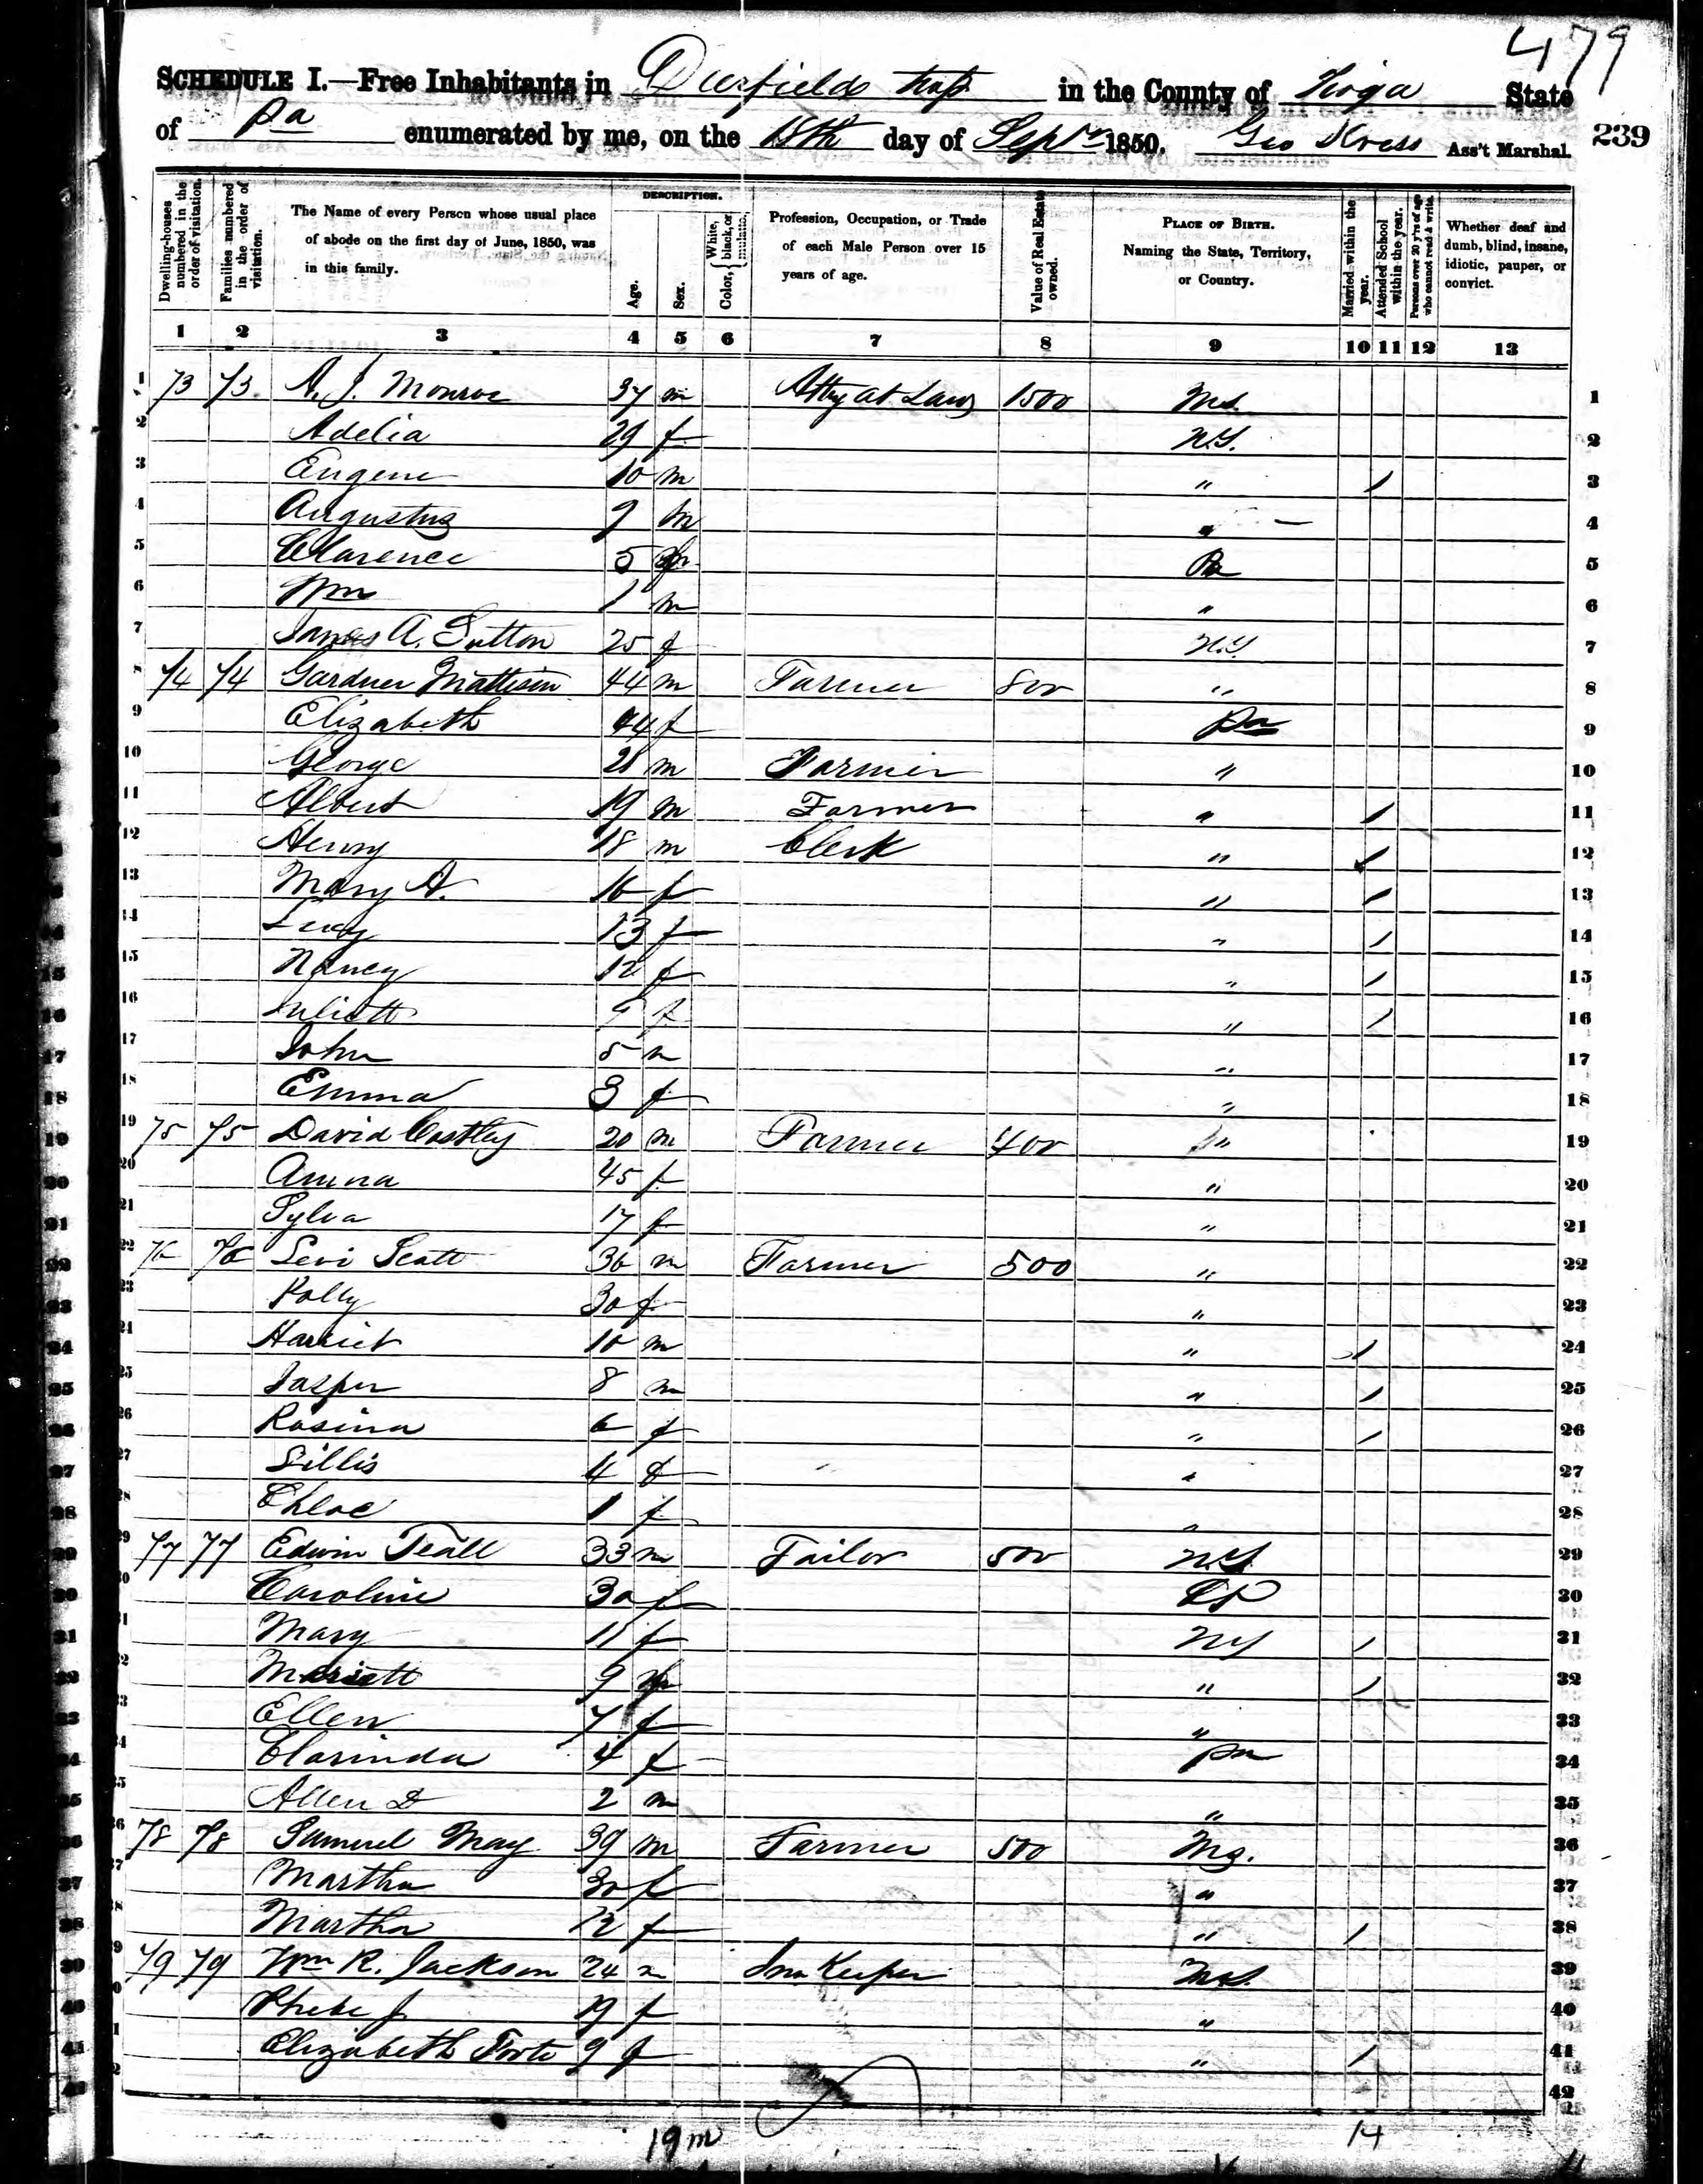 479
SCHEDULE I.—Free Inhabitants in Deerfield Twp in the County of Tioga State
of Pa enumerated by me, on the 18th day of Sept 1850. Geo Kress Ass't Marshal. 239
Dwelling-houses numbered in the order of visitation.
Families numbered in the order of visitation.
The Name of every Person whose usual place of abode on the first day of June, 1850, was in this family.
DESCRIPTION.
Age.
Sex.
Color, { White, black, or mulatto.
Profession, Occupation, or Trade of each Male Person over 15 years of age.
Value of Real Estate owned.
PLACE OF BIRTH. Naming the State, Territory, or Country.
Married within the year.
Attended School within the year.
Persons over 20 y'rs of age who cannot read & write.
Whether deaf and dumb, blind, insane, idiotic, pauper, or convict.
1 2 3 4 5 6 7 8 9 10 11 12 13
1 73 73 A. J. Monroe 37 m Atty at Law 1500 1
2 Adelia 29 f N.Y. 2
3 Eugene 10 m " / 3
4 Augustus 7 m " 4
5 Clarence 5 m Pa 5
6 Wm 1 m " 6
7 A. Sutton 25 f N.Y. 7
8 74 74 Gardner Mattison 44 m Farmer 800 " 8
9 Elizabeth 44 f Pa 9
10 George 21 m Farmer " 10
11 Albert 19 m Farmer " / 11
12 Henry 18 m Clerk " / 12
13 Mary A. 16 f " / 13
14 Lucy 13 f " / 14
15 Nancy 12 f " / 15
16 Juliett 9 f " / 16
17 John 5 m " 17
18 Emma 3 f " 18
19 75 75 David Costley 20 m Farmer 400 " 19
20 Anna 45 f " 20
21 Sylva 17 f " 21
22 76 76 Levi Scott 36 m Farmer 500 " 22
23 Polly 30 f " 23
24 Harriet 10 m " / 24
25 Jasper 8 m " / 25
26 Rosina 6 f " / 26
27 Lillis 4 f " 27
28 Chloe 1 f " 28
29 77 77 Edwin Teall 33 m Tailor 500 N.Y. 29
30 Caroline 30 f 30
31 Mary 11 f NY / 31
32 Mariett 9 f " / 32
33 Ellen 7 f " 33
34 Clarinda 4 f Pa 34
35 Allen D 2 m " 35
36 78 78 Samuel May 39 m Farmer 500 36
37 Martha 30 f " 37
38 Martha 12 f " / 38
39 79 79 Wm R. Jackson 24 m Inn Keeper 39
40 Phebe J. 19 f " 40
41 Elizabeth 9 f " / 41
42 42
19 m 14